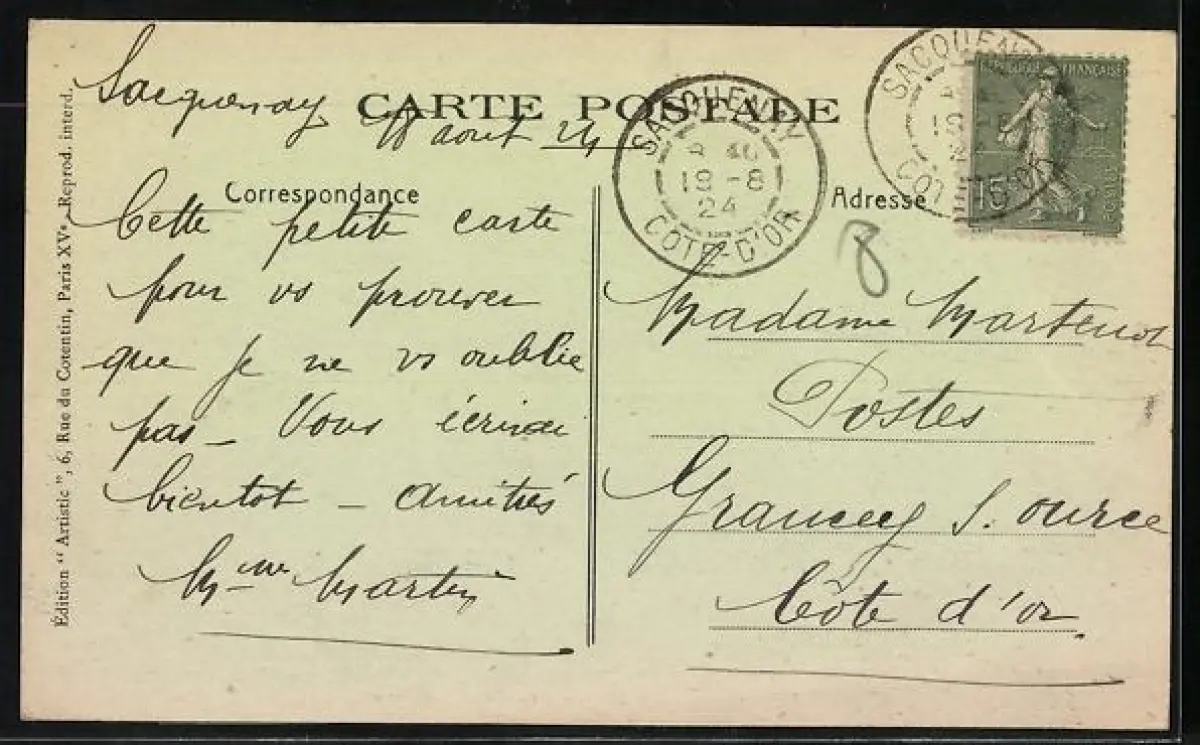 Sacquenay
18 aout 24
CARTE POSTALE
Correspondance
Cette petite carte
pour vs prouver
que je ne vs oublie
pas – Vous écrirai
bientot – Amitiés
Mme Martin
SACQUENAY
19 -8
24
COTE-D'OR
SACQUENAY
COTE-D'OR
REPUBLIQUE FRANÇAISE
15c
Adresse
8
Madame Martenot
Postes
Grancey s. ource
Côte d'or
Édition " Artistic ", 6, Rue du Cotentin, Paris XVe. Reprod. interd.